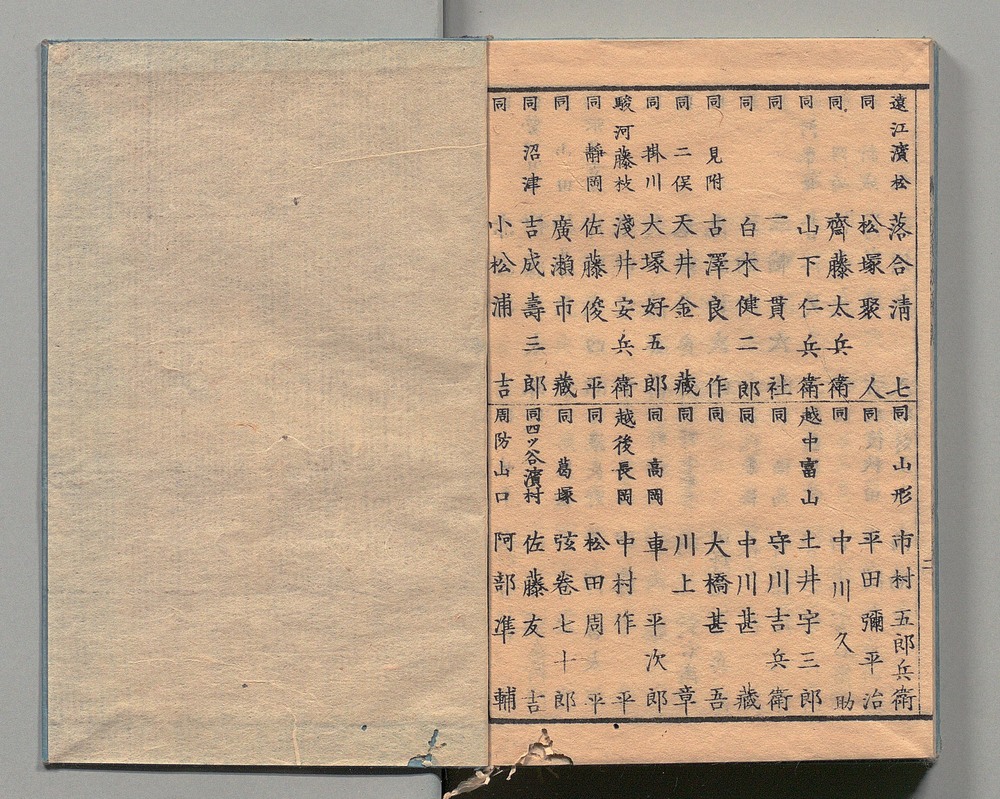 遠江濱松 落合清七
同 松塚聚人
同 齋藤太兵衛
同 山下仁兵衛
同 貫六社
同 白木健二郎
同 見附 古澤良作
同 二俣 天井金藏
同 掛川 大塚好五郎
駿河藤枝 淺井安兵衛
同 靜岡 佐藤俊平
同 廣瀬市藏
同 沼津 吉成壽三郎
同 小松浦吉
同 山形 市村五郎兵衛
同 平田彌平治
同 中川久助
越中富山 土井宇三郎
同 守川吉兵衛
同 中川甚藏
同 大橋甚吾
同 川上章
同 高岡 車平次郎
越後長岡 中村作平
同 松田周平
同 葛塚 弦巻七十郎
同四ツ谷濱村 佐藤友吉
周防山口 阿部準輔
二